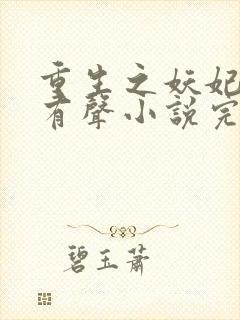 重生之妖妃
有聲小說完
碧玉蕭